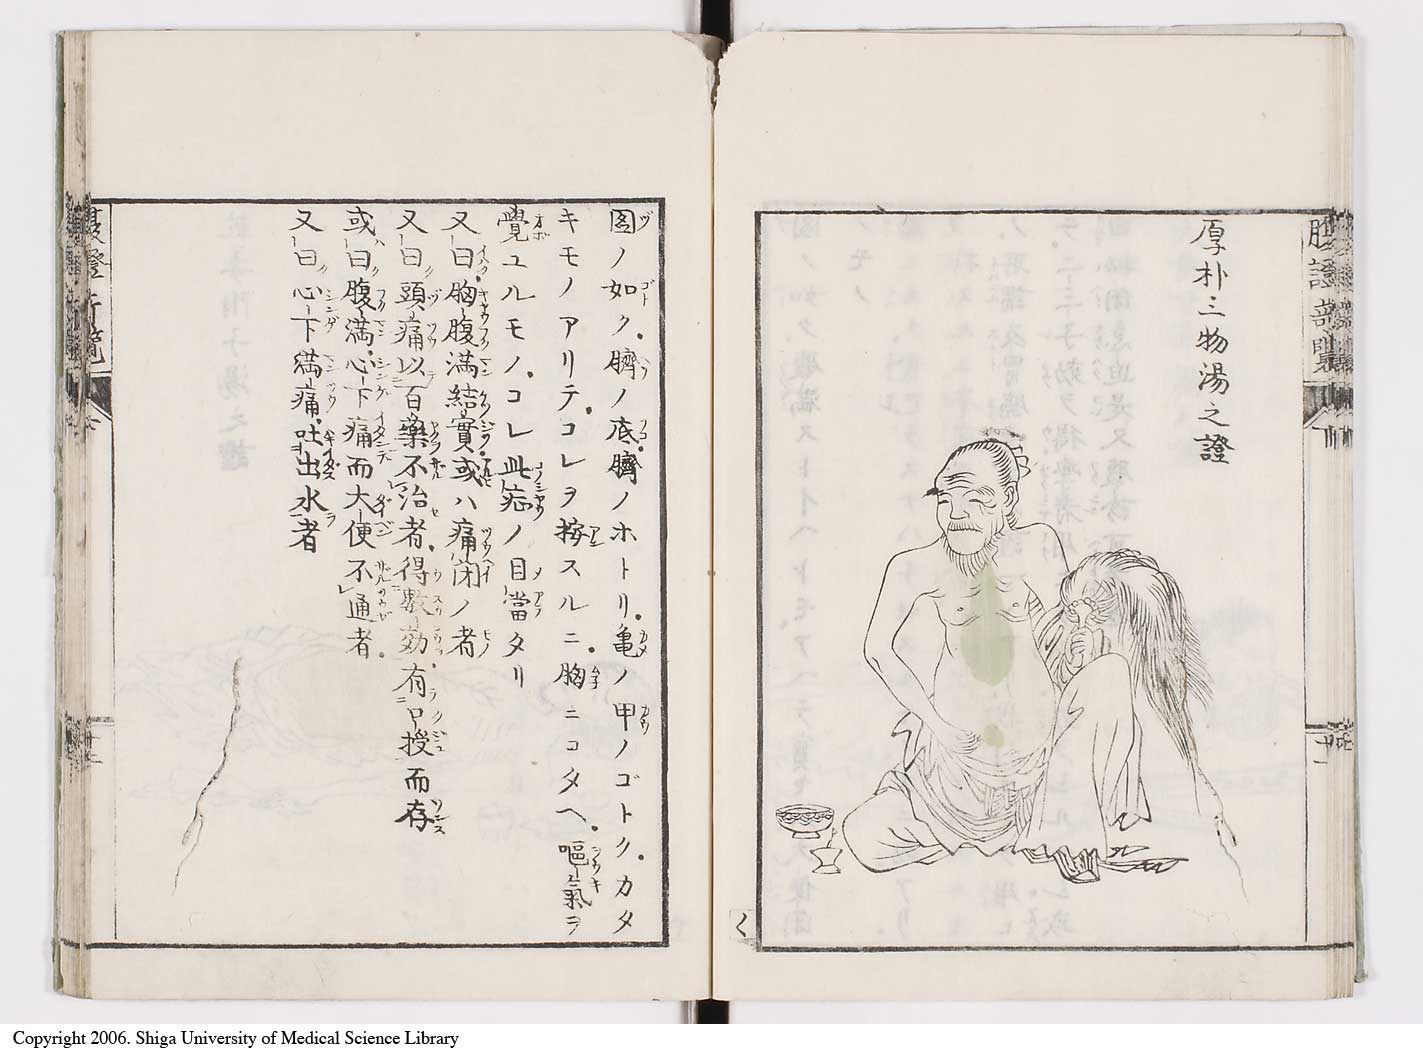 厚朴三物湯之證
図ノ如ク臍ノ底臍ノホトリ亀ノ甲ノゴトクカタ
キモノアリテコレヲ按スルニ胸ニコタヘ嘔氣ヲ
覺ユルモノコレ此症ノ目當タリ
又曰胸腹満結實或ハ痛閉ノ者
又曰頭痛以百藥不治者得數効有口授而存
或曰腹満心下痛而大便不通者
又曰心下満痛吐出水者
Copyright 2006. Shiga University of Medical Science Library